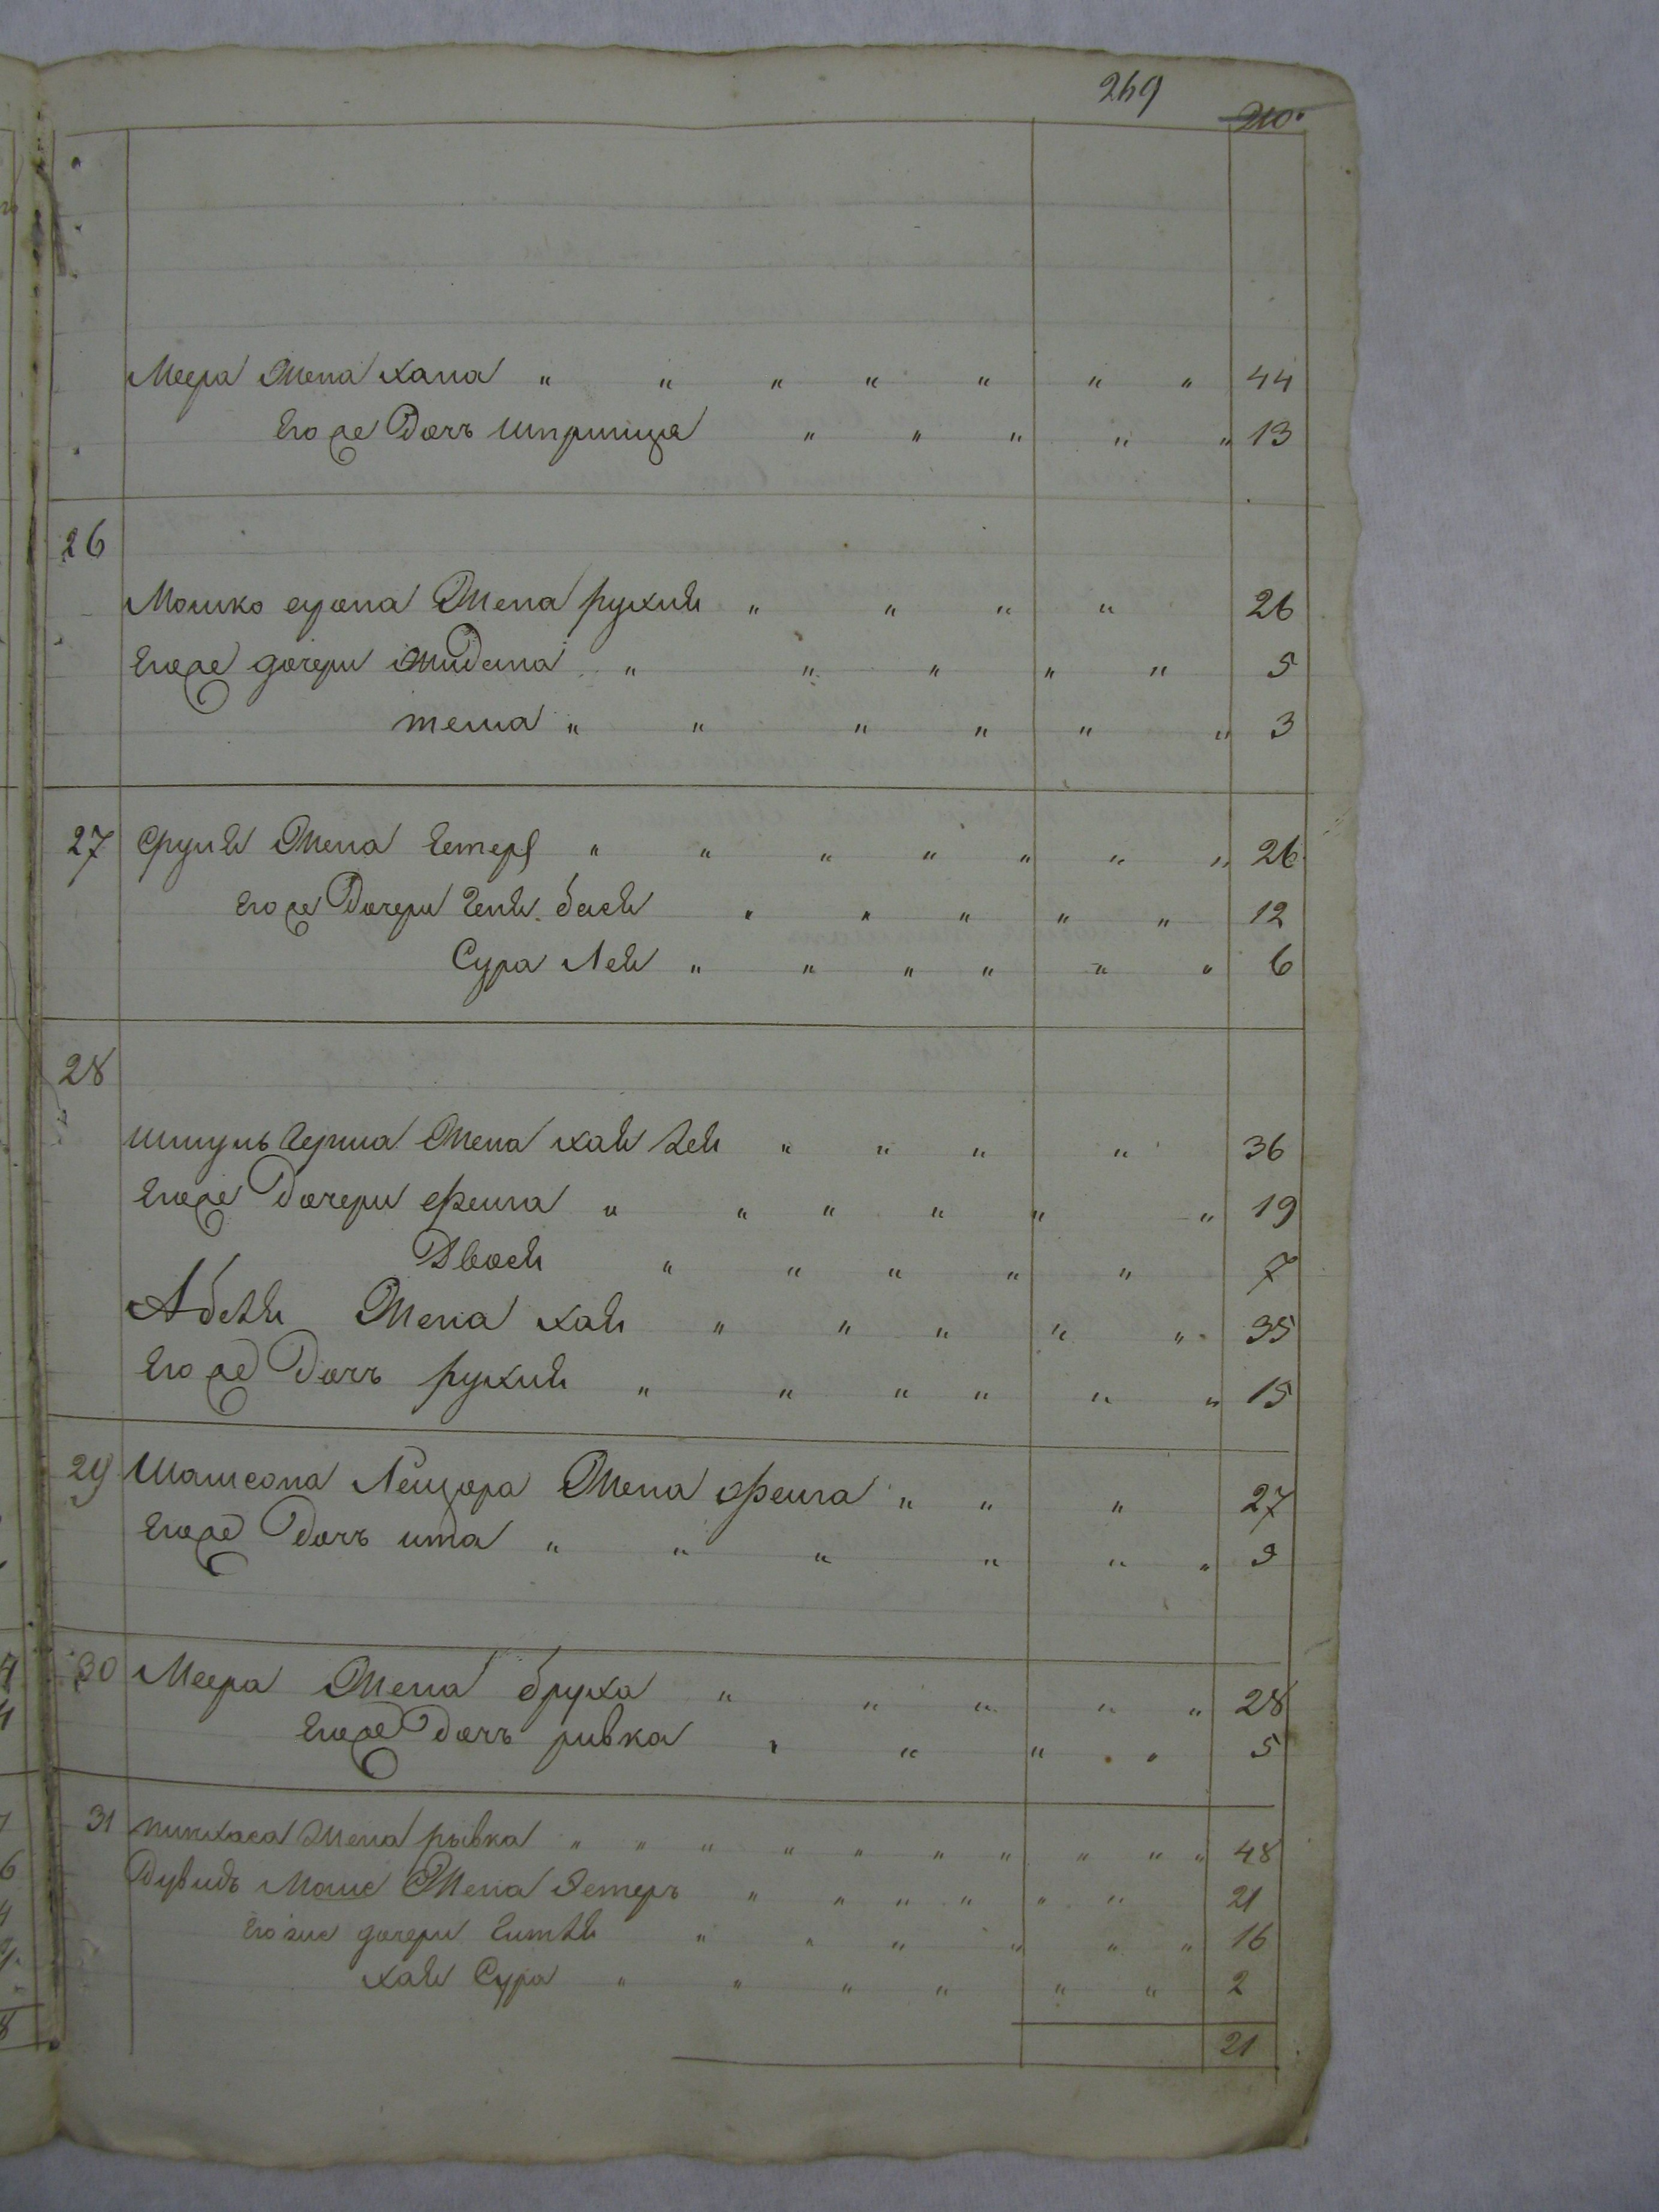 269
210.
Меера Жена хана " " " " " " " 44
Его же Дочь шпринца " " " " " 13
26
Мошко сузона Жена рухли " " " " 26
Егоже дочери Миндина " " " " " 5
темиа " " " " " " 3
27 Сруля Жена Естеръ " " " " " " " 26
Его же Дочери Геня бася " " " " " 12
Сура Лея " " " " " " 6
28
шмуль герша Жена хая Зея " " " " 36
Егоже Дочери фейга " " " " " " 19
Двося " " " " " 7
Абели Жена хая " " " " " 35
Его же Дочь рухля " " " " " " 15
29 Шамсона Лейзора Жена фейга " " " 27
Егоже Дочь ита " " " " " " 3
30 Меера Жена бруха " " " " " 28
Егоже Дочь ривка " " " " 5
31 пинхаса Жена рывка " " " " " " " " " " 48
Дувидъ Моше Жена Эстеръ " " " " " " 21
Его же дочери Гитля " " " " " " 16
хая Сура " " " " " " 2
21